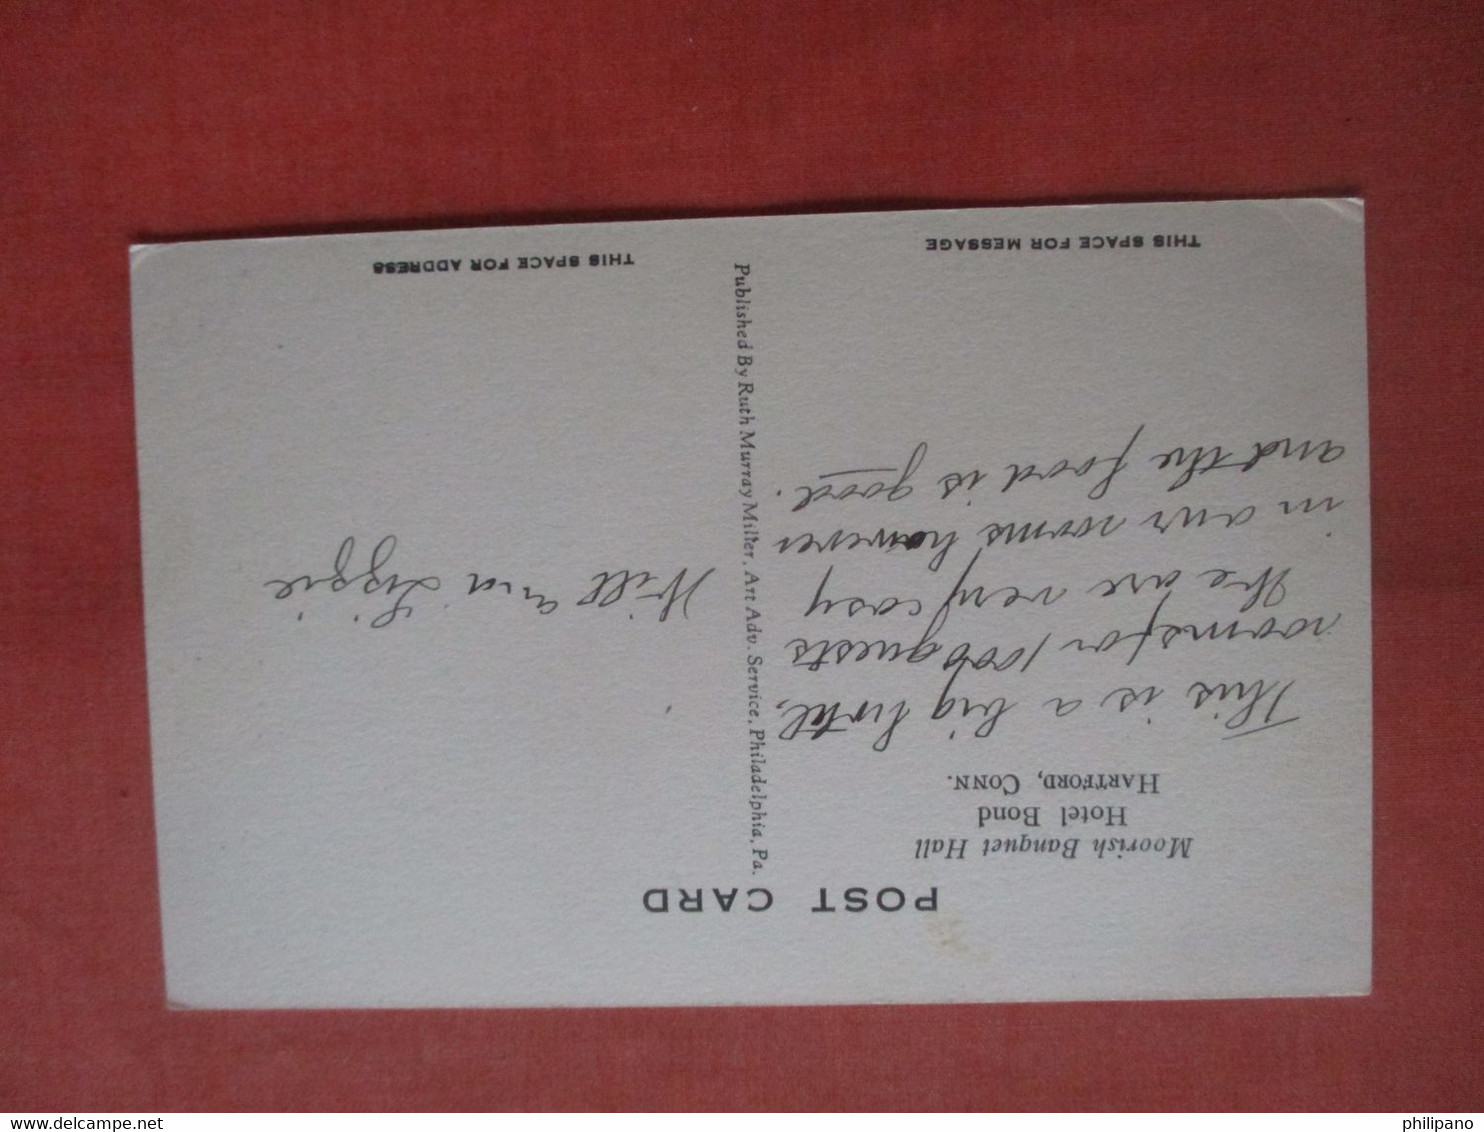 POST CARD
Moorish Banquet Hall
Hotel Bond
HARTFORD, CONN.
This is a big hotel,
rooms for 1000 guests
We are very cosy
in our rooms however
and the food is good.
THIS SPACE FOR MESSAGE
Published By Ruth Murray Miller, Art Adv. Service, Philadelphia, Pa.
Will and Lizzie
THIS SPACE FOR ADDRESS
philipano